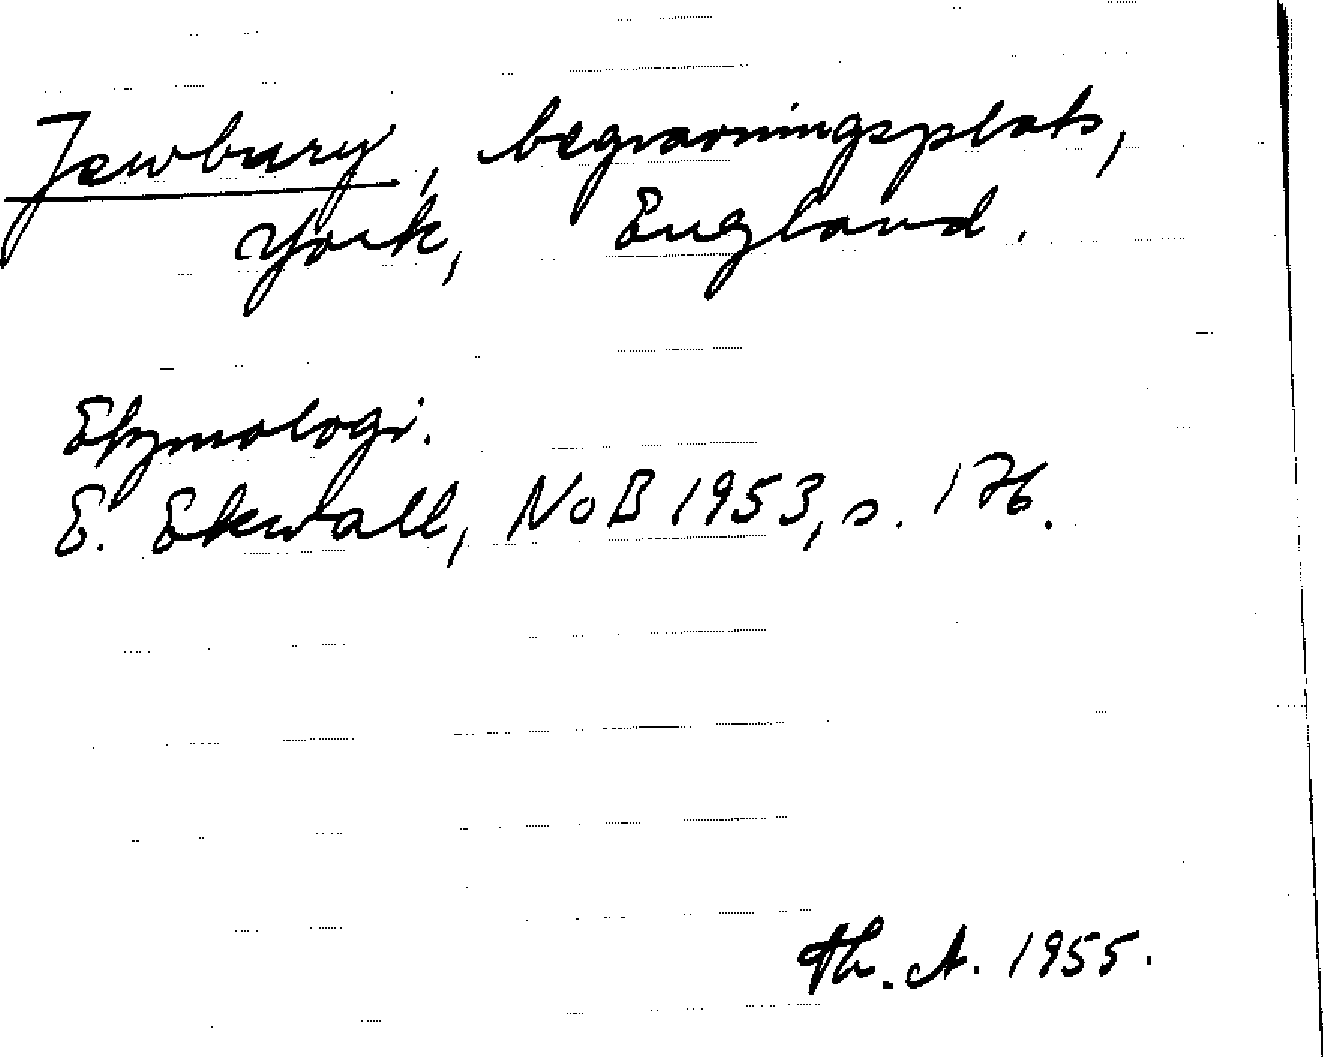 Jewbury, begravningsplats,
York, England.
Etymologi.
E. Ekwall, NoB 1953, s. 176.
Th. A. 1955.